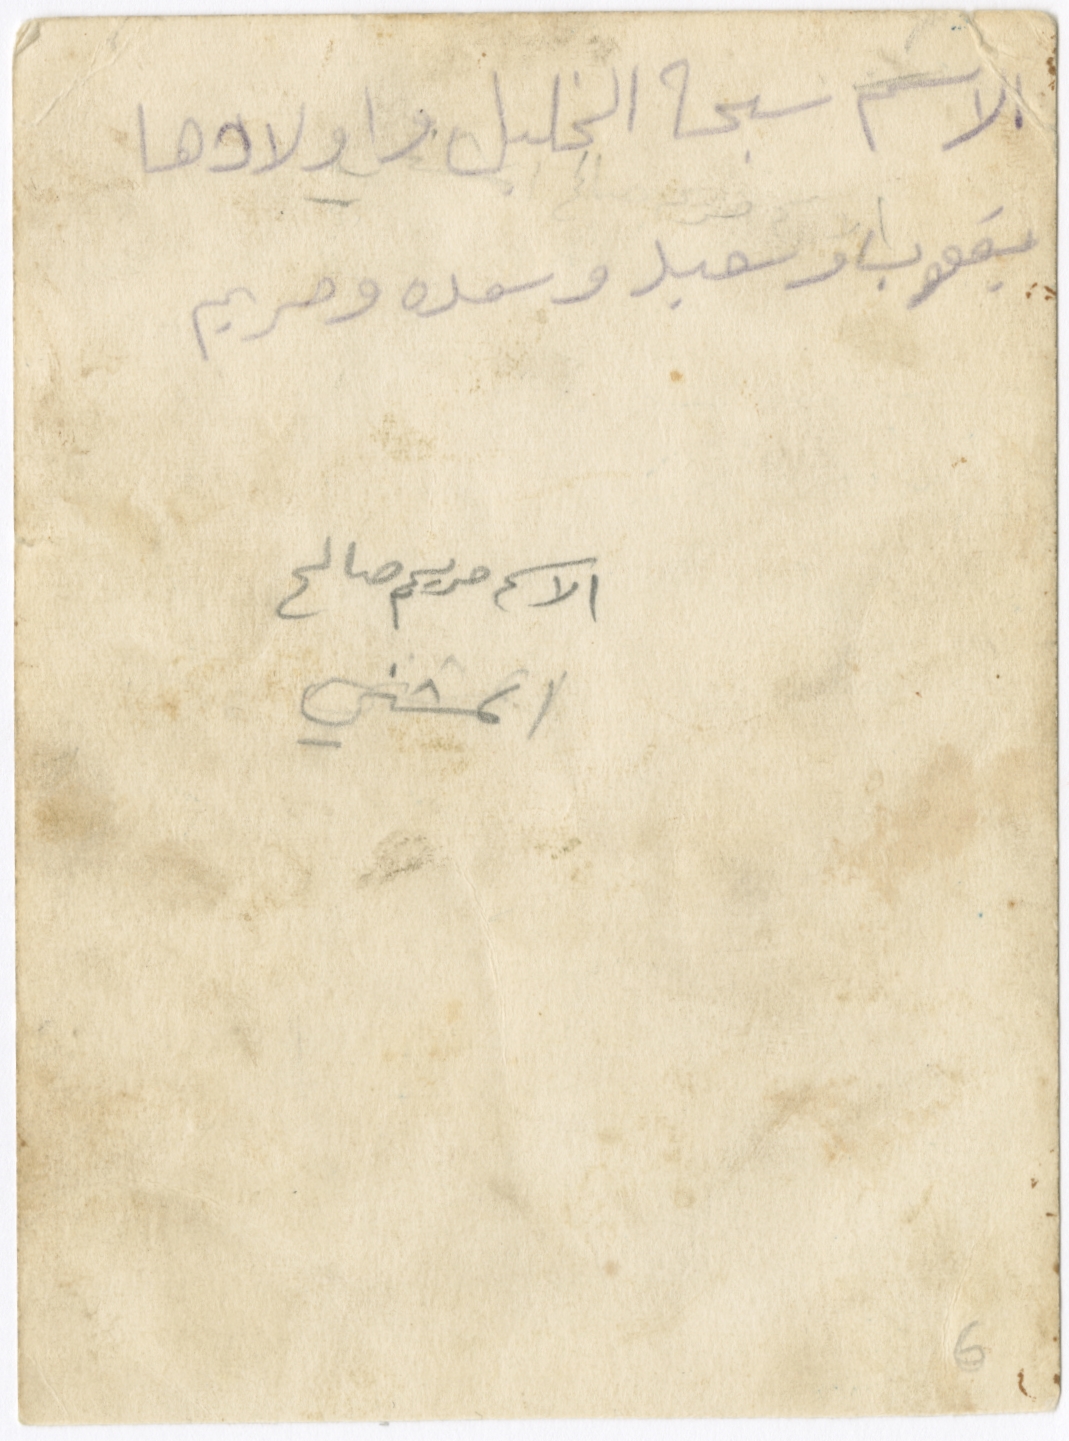 الاسم سبحة الخليل واولادها
يعقوب وسعيد وسعده ومريم
الاسم مريم صالح
6